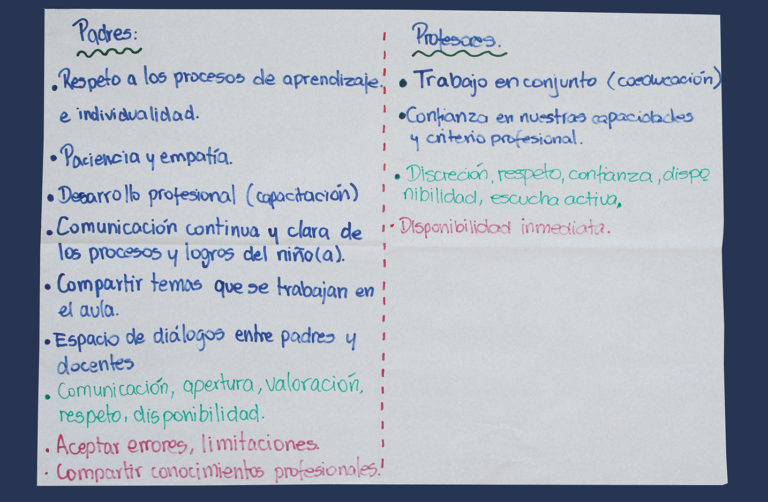 Padres:
• Respeto a los procesos de aprendizaje
e individualidad.
• Paciencia y empatía.
• Desarrollo profesional (capacitación)
• Comunicación continua y clara de
los procesos y logros del niño(a).
• Compartir temas que se trabajan en
el aula.
• Espacio de diálogos entre padres y
docentes
• Comunicación, apertura, valoración,
respeto, disponibilidad.
• Aceptar errores, limitaciones.
• Compartir conocimientos profesionales.
Profesores.
• Trabajo en conjunto (coeducación)
• Confianza en nuestras capacidades
y criterio profesional.
• Discreción, respeto, confianza, dispo
nibilidad, escucha activa.
• Disponibilidad inmediata.